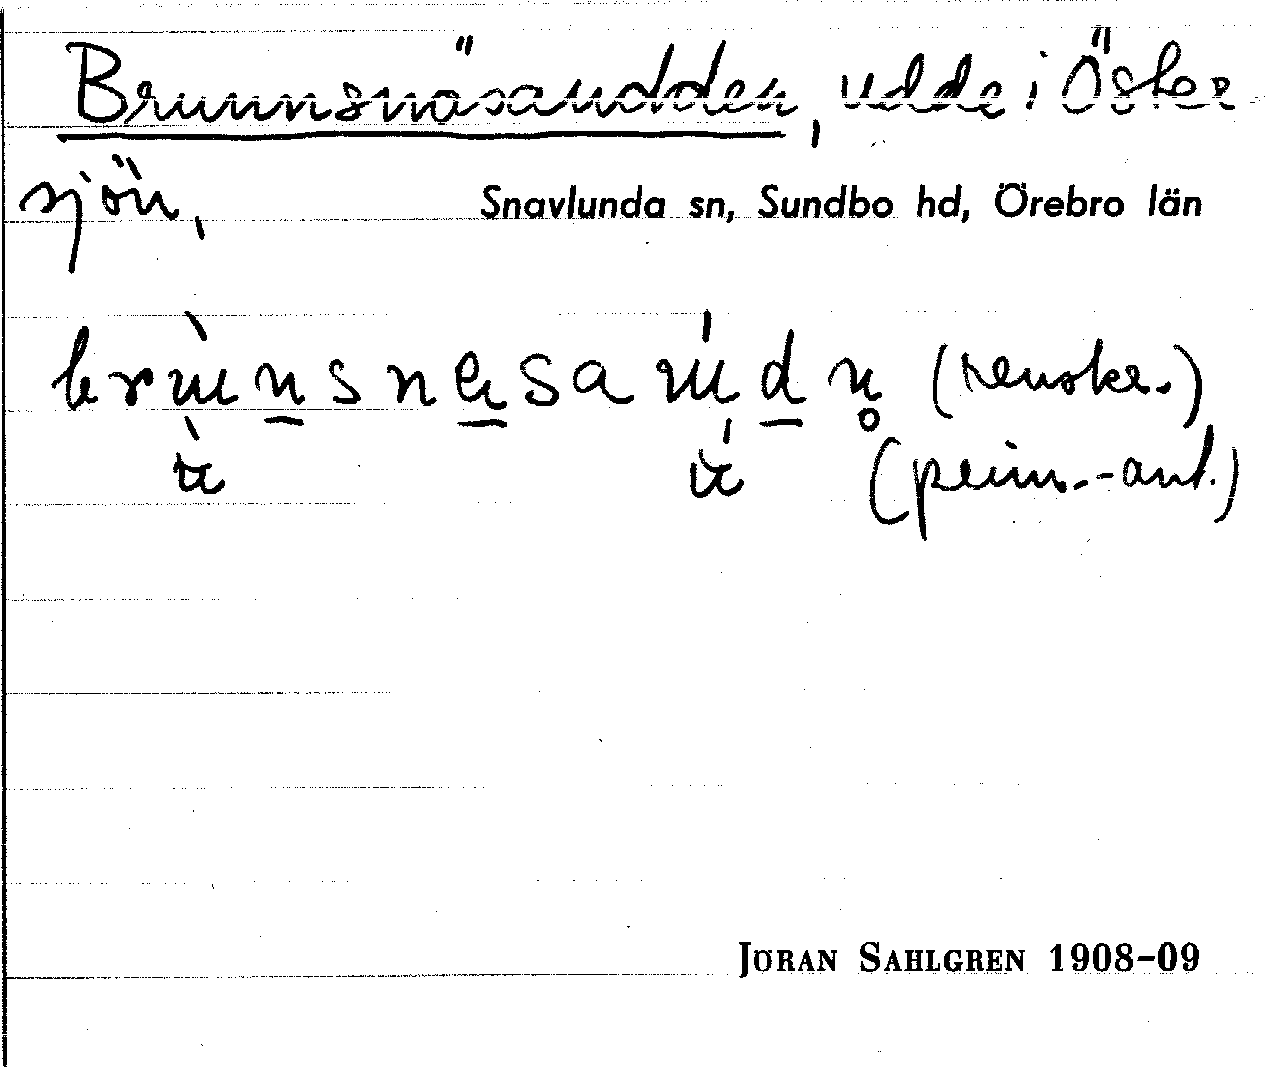 Brunnsnäsaudden, udde i Öster
sjön,
Snavlunda sn, Sundbo hd, Örebro län
(renskr.)
(prim.-ant.)
JÖRAN SAHLGREN 1908-09